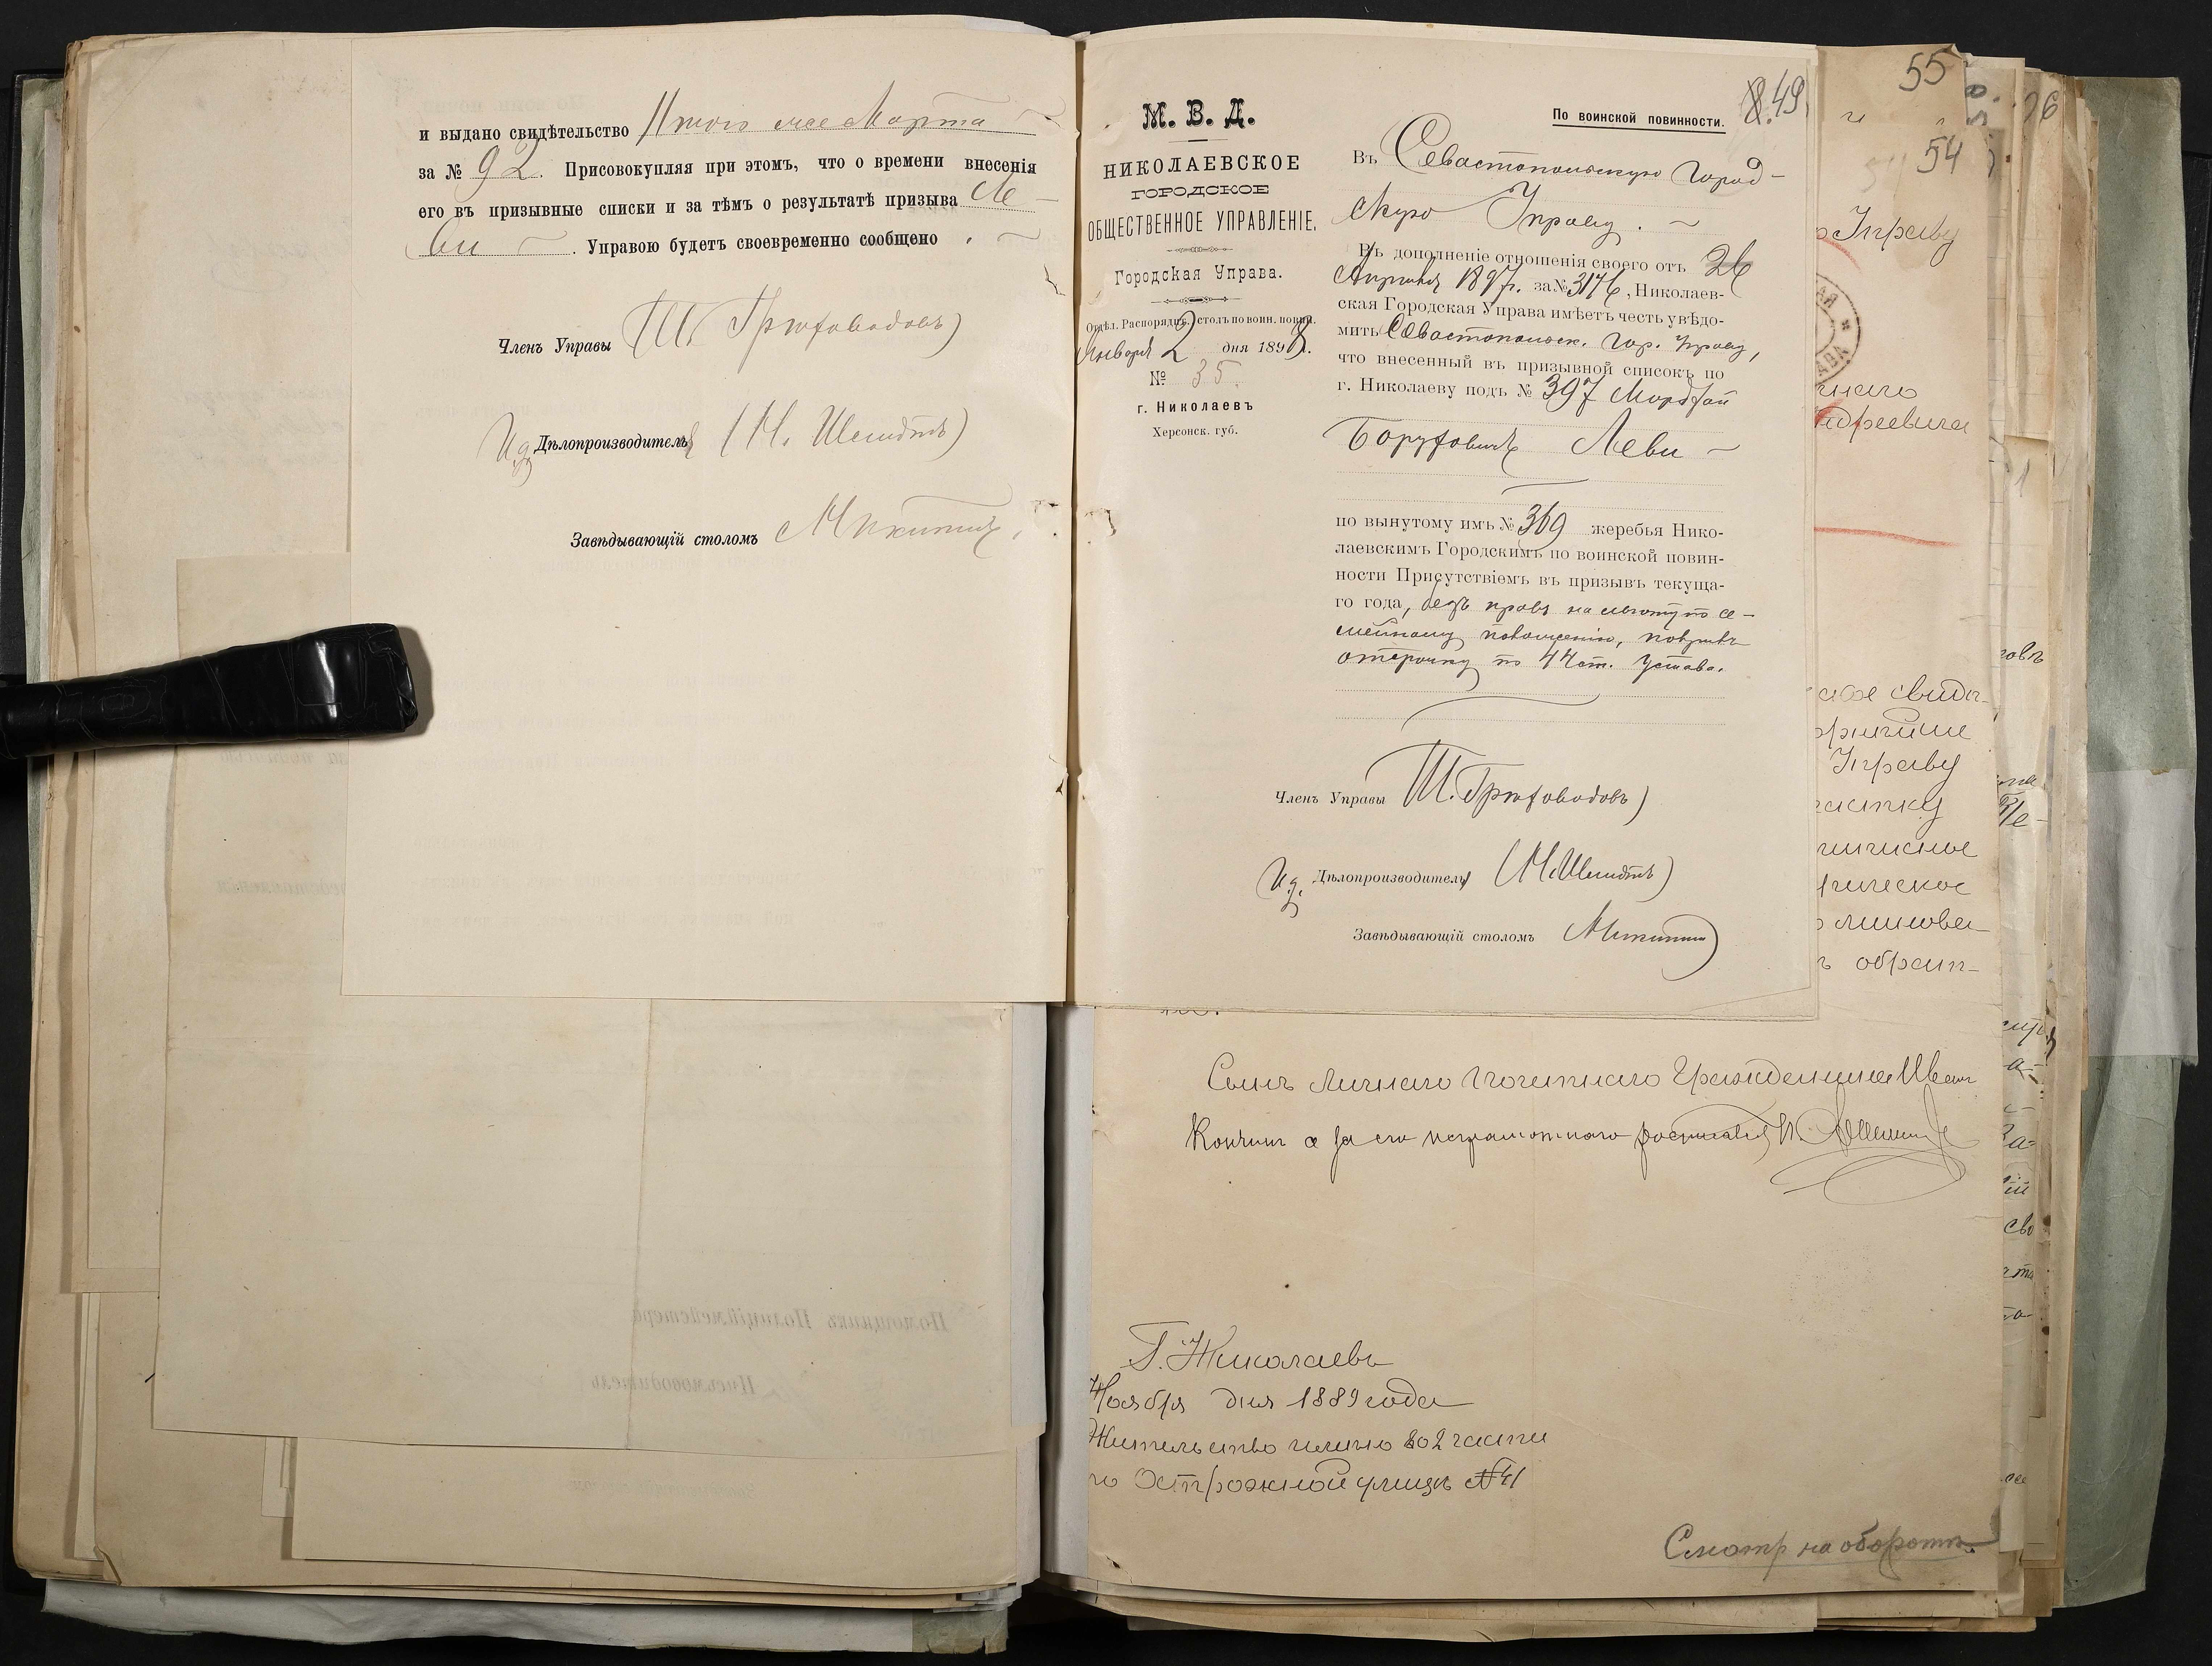 и выдано свидѣтельство 11 того мѣс Марта
за № 92. Присовокупляя при этомъ, что о времени внесенія
его въ призывные списки и за тѣмъ о результатѣ призыва Ле-
ви. Управою будетъ своевременно сообщено.
Членъ Управы
И. д. Дѣлопроизводителя (Н. Шмидтъ)
Завѣдывающій столомъ Микитинъ
М. В. Д.
НИКОЛАЕВСКОЕ
ГОРОДСКОЕ
ОБЩЕСТВЕННОЕ УПРАВЛЕНІЕ.
Городская Управа.
Отдѣл. Распорядит. столъ по воин. повин.
Января 2 дня 1898 г.
№ 35.
г. Николаевъ
Херсонск. губ.
49
По воинской повинности.
Въ Севастопольскую Город-
скую Управу.
Въ дополненіе отношенія своего отъ 26
Апрѣля 1897г. за № 3176, Николаев-
ская Городская Управа имѣетъ честь увѣдо-
мить Севастопольск. Гор. Управу,
что внесенный въ призывной списокъ по
г. Николаеву подъ № 397 Мордхай
Боруховичъ Леви
по вынутому имъ № 369 жеребья Нико-
лаевскимъ Городскимъ по воинской повин-
ности Присутствіемъ въ призывъ текуща-
го года, безъ правъ на льготу по се-
мейному положенію, получилъ
отсрочку по 44 ст. Устава.
Членъ Управы
И. д. Дѣлопроизводителя (Н. Шмидтъ)
Завѣдывающій столомъ Микитинъ
55
54
Управу
Сынъ Личнаго Почетнаго Гражданина Иванъ
а за его неграмотнаго росписался
Г. Николаевъ
Ноября дня 1889 года
Жительство имѣю во 2 части
по Острожной улицѣ № 41
Смотр на оборотѣ